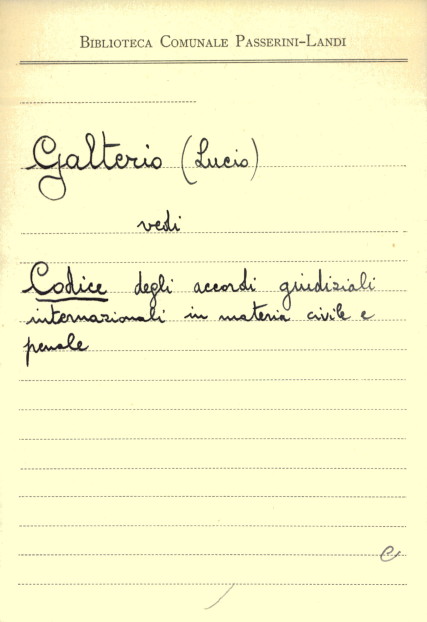 BIBLIOTECA COMUNALE PASSERINI-LANDI
Galterio (Lucio)
vedi
Codice degli accordi giudiziali
internazionali in materia civile e
penale
e